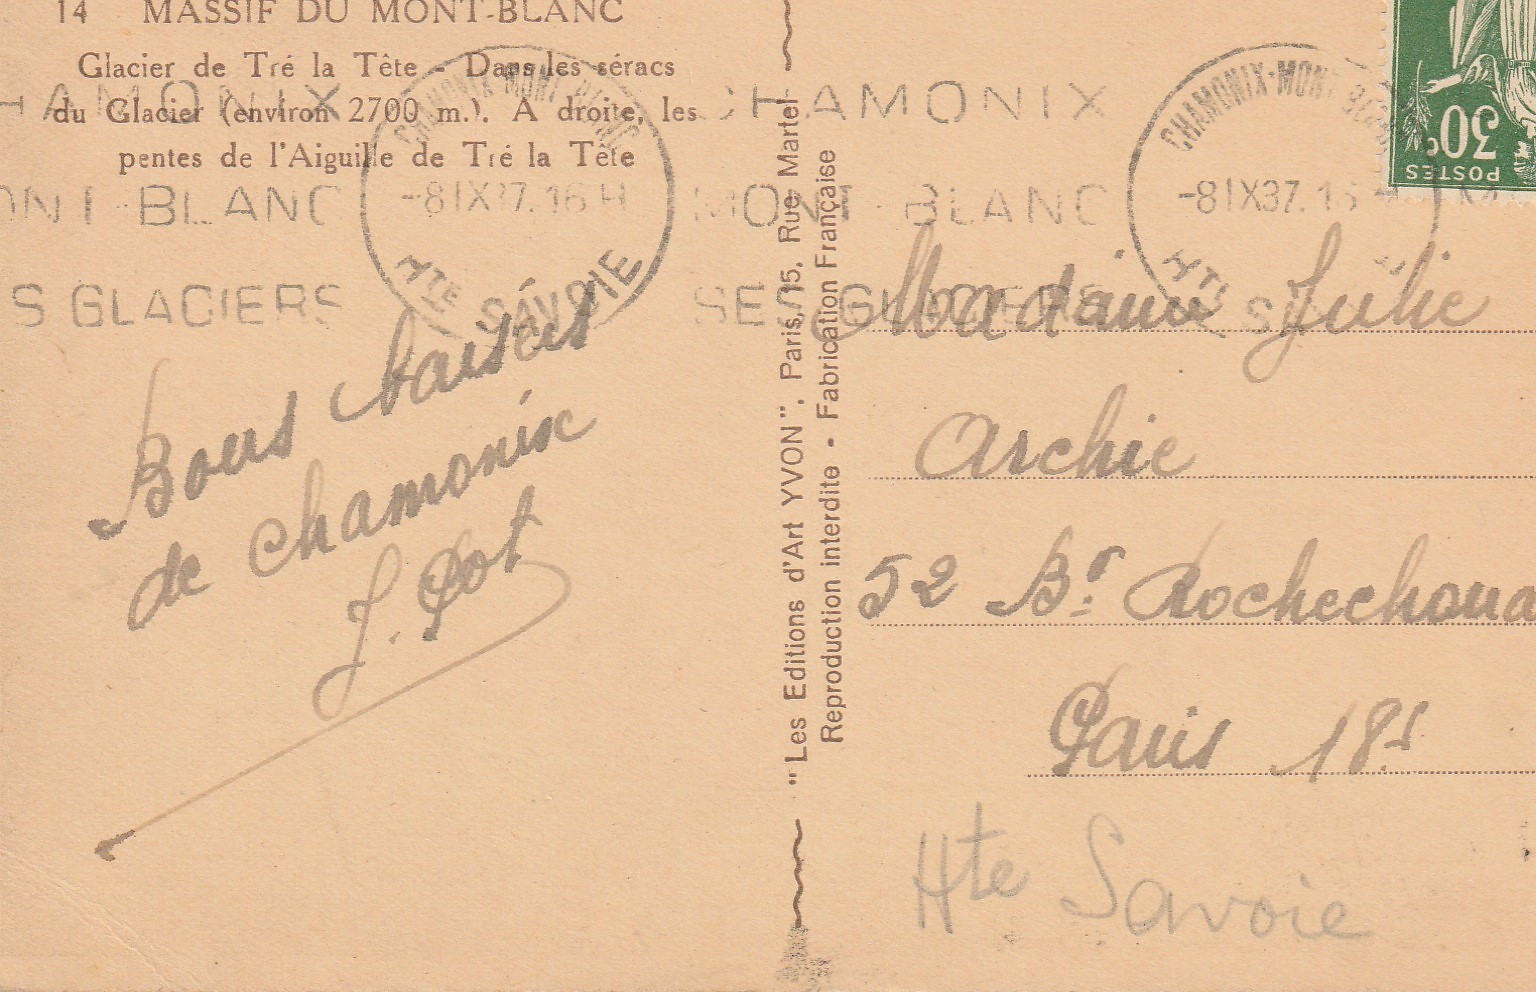 14 MASSIF DU MONT-BLANC
Glacier de Tré la Tête - Dans les séracs
du Glacier (environ 2700 m.). A droite, les
pentes de l'Aiguille de Tré la Tête
HAMONIX
ONT-BLANC
S GLACIERS
CHAMONIX-MONT-BLANC
-8 IX 37. 16 H
HTE SAVOIE
CHAMONIX
MONT-BLANC
SES GLACIERS
CHAMONIX-MONT-BLANC
-8 IX 37. 16 H
HTE SA
30c
POSTES
Bons baisers
de chamonix
J. Pot
"Les Editions d'Art YVON", Paris, 15, Rue Martel
Reproduction interdite - Fabrication Française
Madame Julie
Archie
52 Bd. Rochechoua
Paris 18e
Hte Savoie